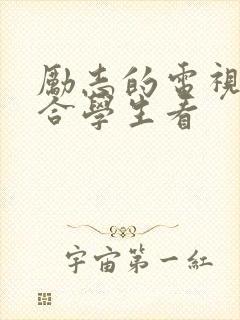 勵志的電視
合學生看
宇宙第一紅